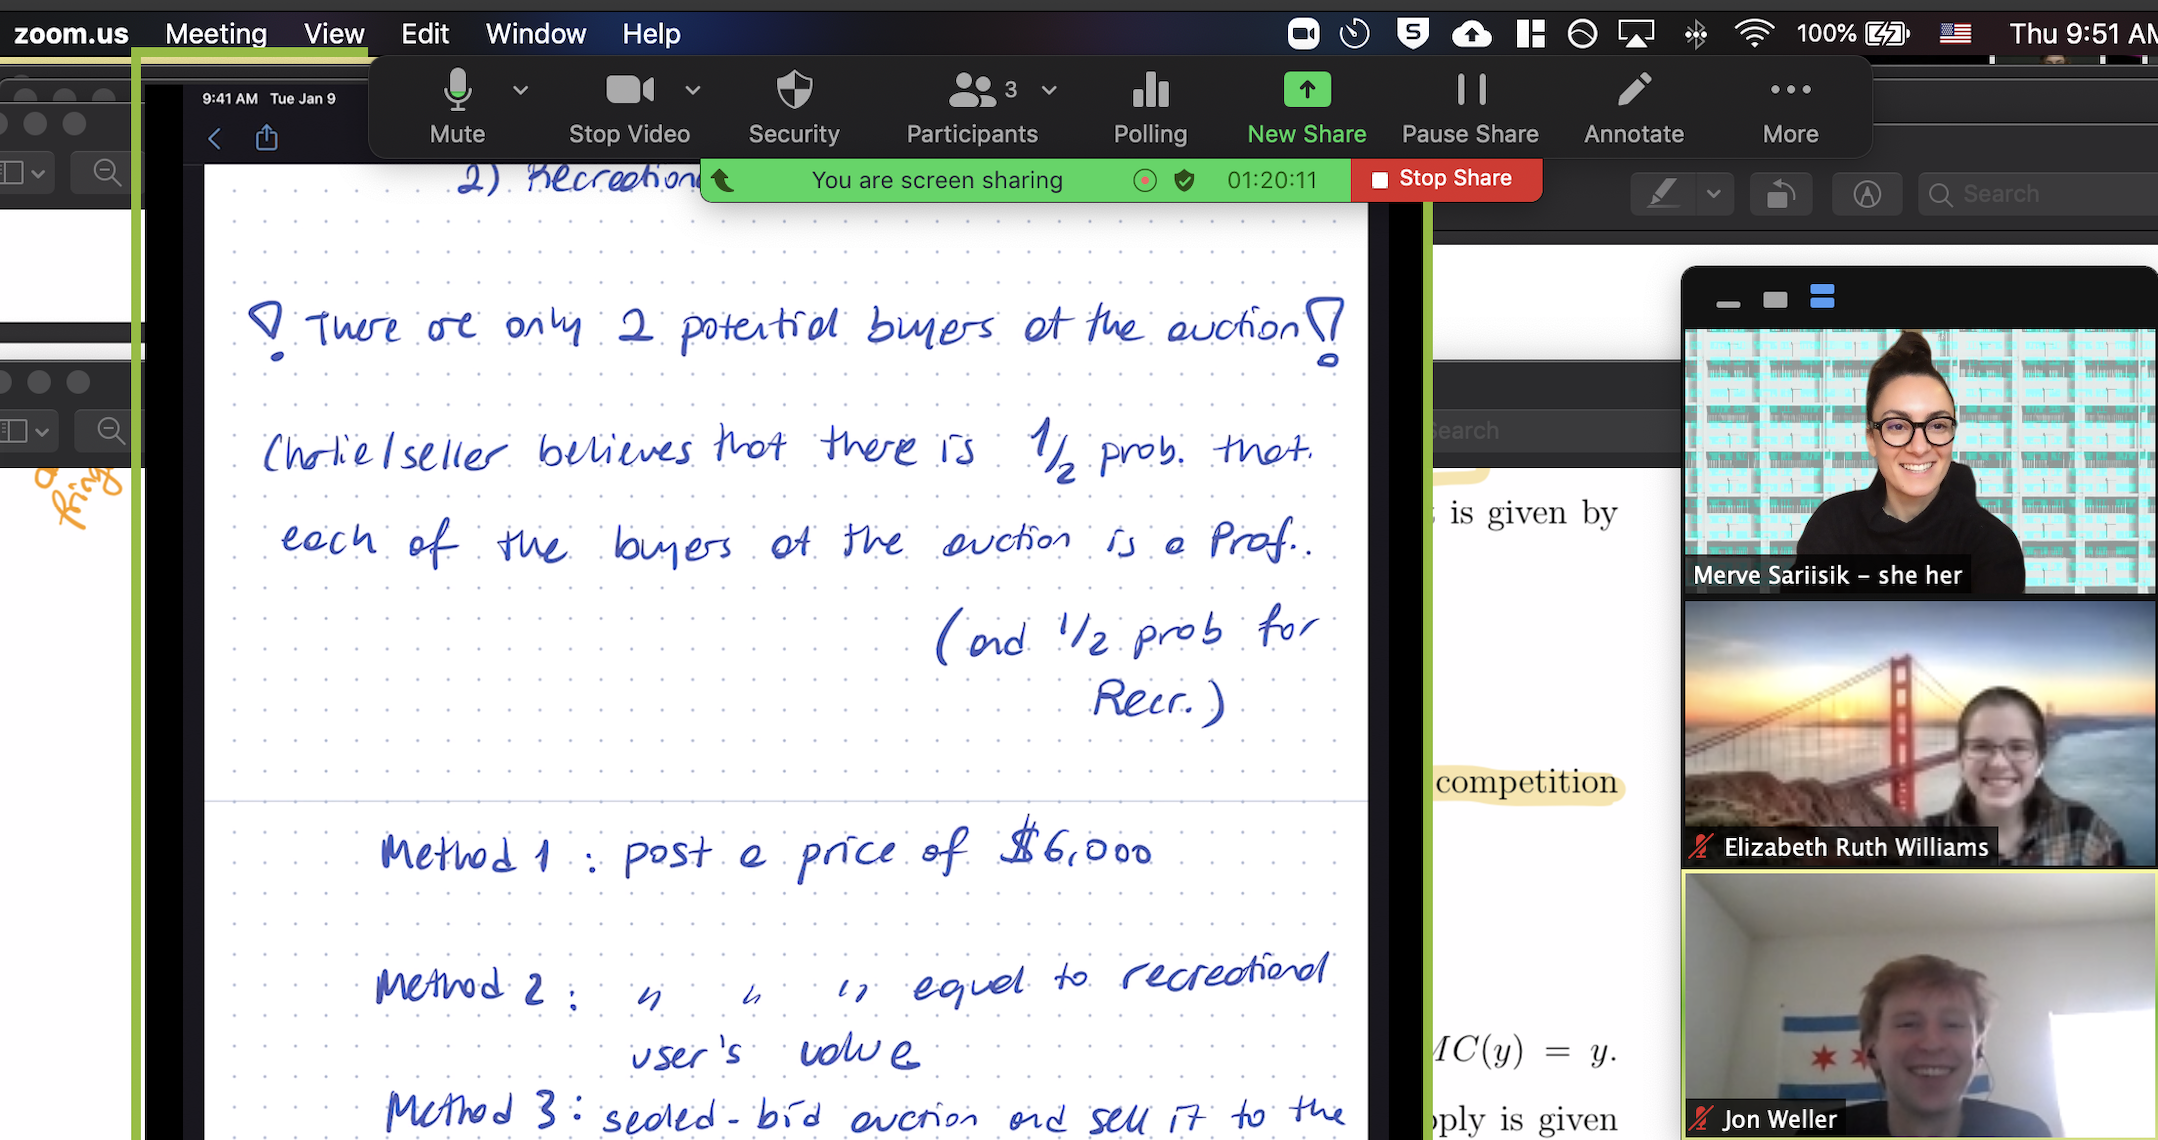 zoom.us Meeting View Edit Window Help 100% Thu 9:51 AM
Mute Stop Video Security Participants 3 Polling New Share Pause Share Annotate More
You are screen sharing 01:20:11 Stop Share
9:41 AM Tue Jan 9
Search
2) Recreation
There are only 2 potential buyers at the auction
Charlie/seller believes that there is 1/2 prob. that
each of the buyers at the auction is a Prof.
(and 1/2 prob for
Recr.)
Method 1 : post a price of $6,000
Method 2 : " " " equal to recreational
user's value
Method 3 : sealed-bid auction and sell it to the
Search
is given by
competition
MC(y) = y.
pply is given
Merve Sariisik – she her
Elizabeth Ruth Williams
Jon Weller